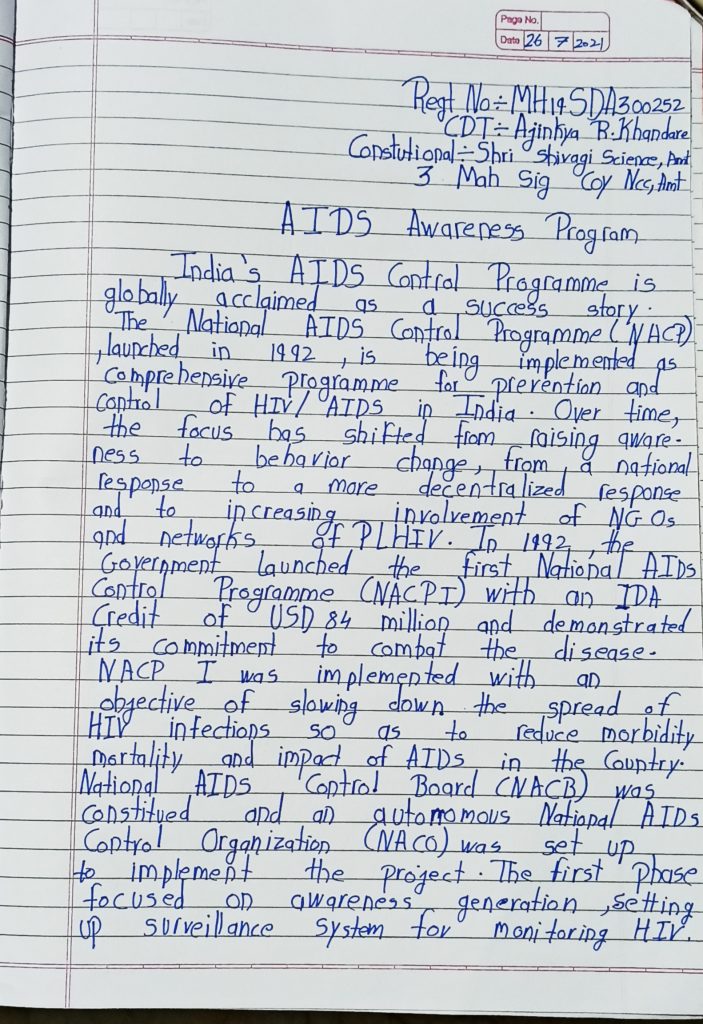 Page No.
Date 26 7 2021
Regt No÷MH19SDA300252
CDT÷Ajinkya R.Khandare
Constutional÷Shri Shivagi Science, Amt
3 Mah Sig Coy Ncc, Amt
AIDS Awareness Program
India's AIDS Control Programme is
globally acclaimed as a success story.
The National AIDS Control Programme (NACP)
,launched in 1992 , is being implemented as
comprehensive programme for prevention and
control of HIV/AIDS in India. Over time,
the focus has shifted from raising aware-
ness to behavior change, from a national
response to a more decentralized response
and to increasing involvement of NGOs
and networks of PLHIV. In 1992, the
Government launched the first National AIDS
Control Programme (NACPI) with an IDA
Credit of USD 84 million and demonstrated
its commitment to combat the disease.
NACP I was implemented with an
objective of slowing down the spread of
HIV infections so as to reduce morbidity
mortality and impact of AIDS in the Country.
National AIDS Control Board (NACB) was
constitued and an autonomous National AIDS
Control Organization (NACO) was set up
to implement the project. The first phase
focused on awareness generation, setting
up surveillance system for monitoring HIV.